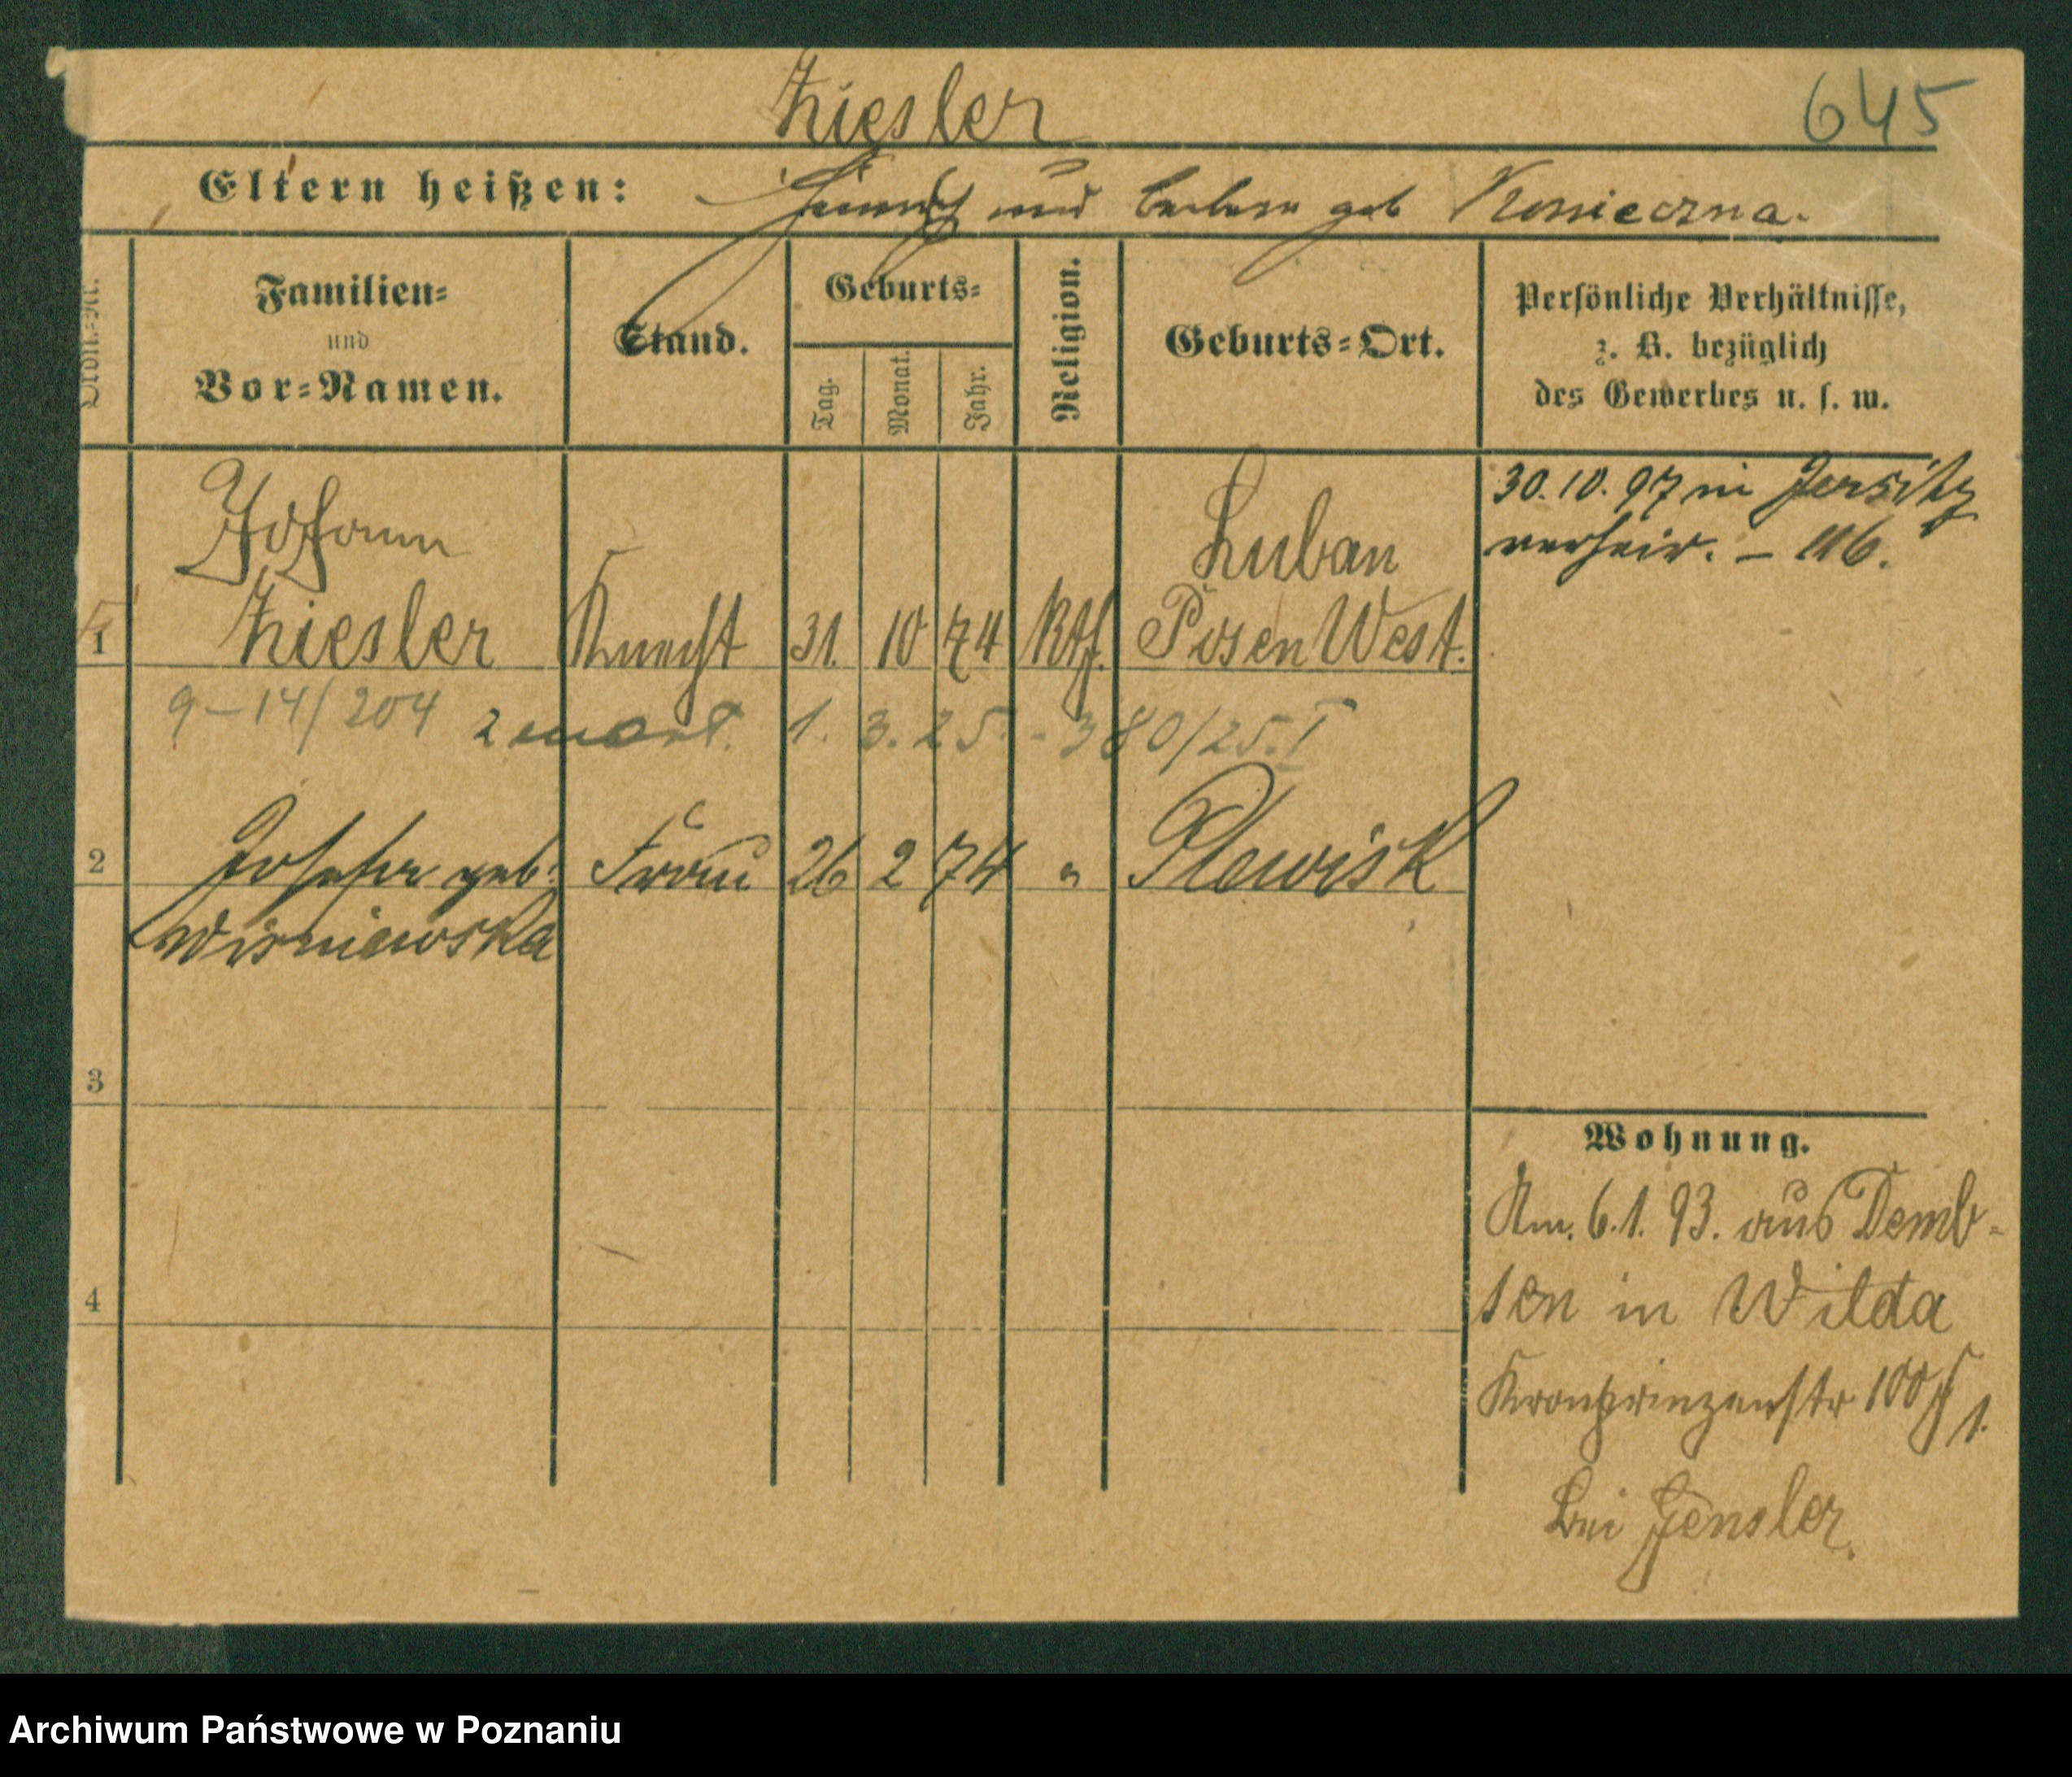 Kiesler
645
Eltern heißen: Heinrich und Barbara geb Konieczna.
Ordn.-Nr.
Familien-
und
Vor-Namen.
Stand.
Geburts-
Tag.
Monat.
Jahr.
Religion.
Geburts-Ort.
Persönliche Verhältnisse,
z. B. bezüglich
des Gewerbes u. s. w.
30.10.97 in Jersitz
verheir. – 116.
Johann Luban
1 Kiesler Knecht 31. 10 74 Kth. Posen West.
9–14/204 zmarł. 1. 3. 25. - 380/25.I
2 Josefa geb. Frau 26 2 74 " Plewisk
Wisniewska
3
4
Wohnung.
Am. 6.1.93. aus Demb-
sen in Wilda
Kronprinzenstr 100 1.
bei Gensler.
Archiwum Państwowe w Poznaniu